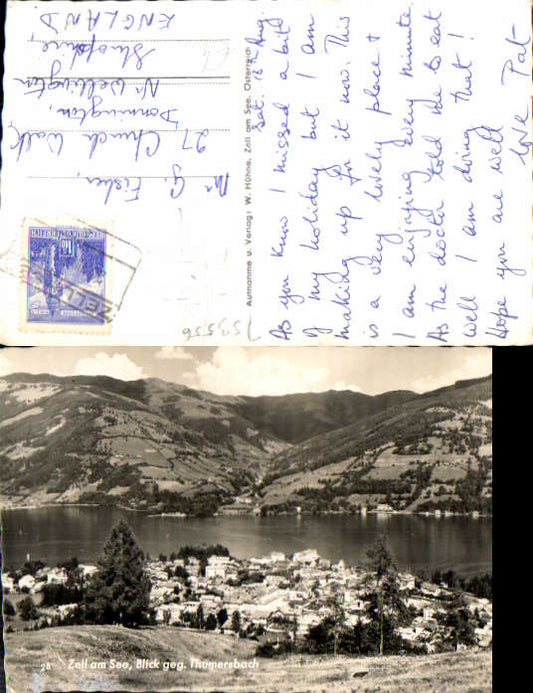 Sat. 18th Aug.
As you know I missed a bit
of my holiday but I am
making up for it now. This
is a very lovely place &
I am enjoying every minute.
As the doctor told me to eat
well I am doing that!
Hope you are well
love Pat
Aufnahme u. Verlag: W. Höhne, Zell am See, Österreich
Mr G. Fisher,
27 Church Walk,
Donnington,
Nr Wellington
Shropshire,
ENGLAND.
ZELL
159556
28 Zell am See, Blick geg. Thumersbach